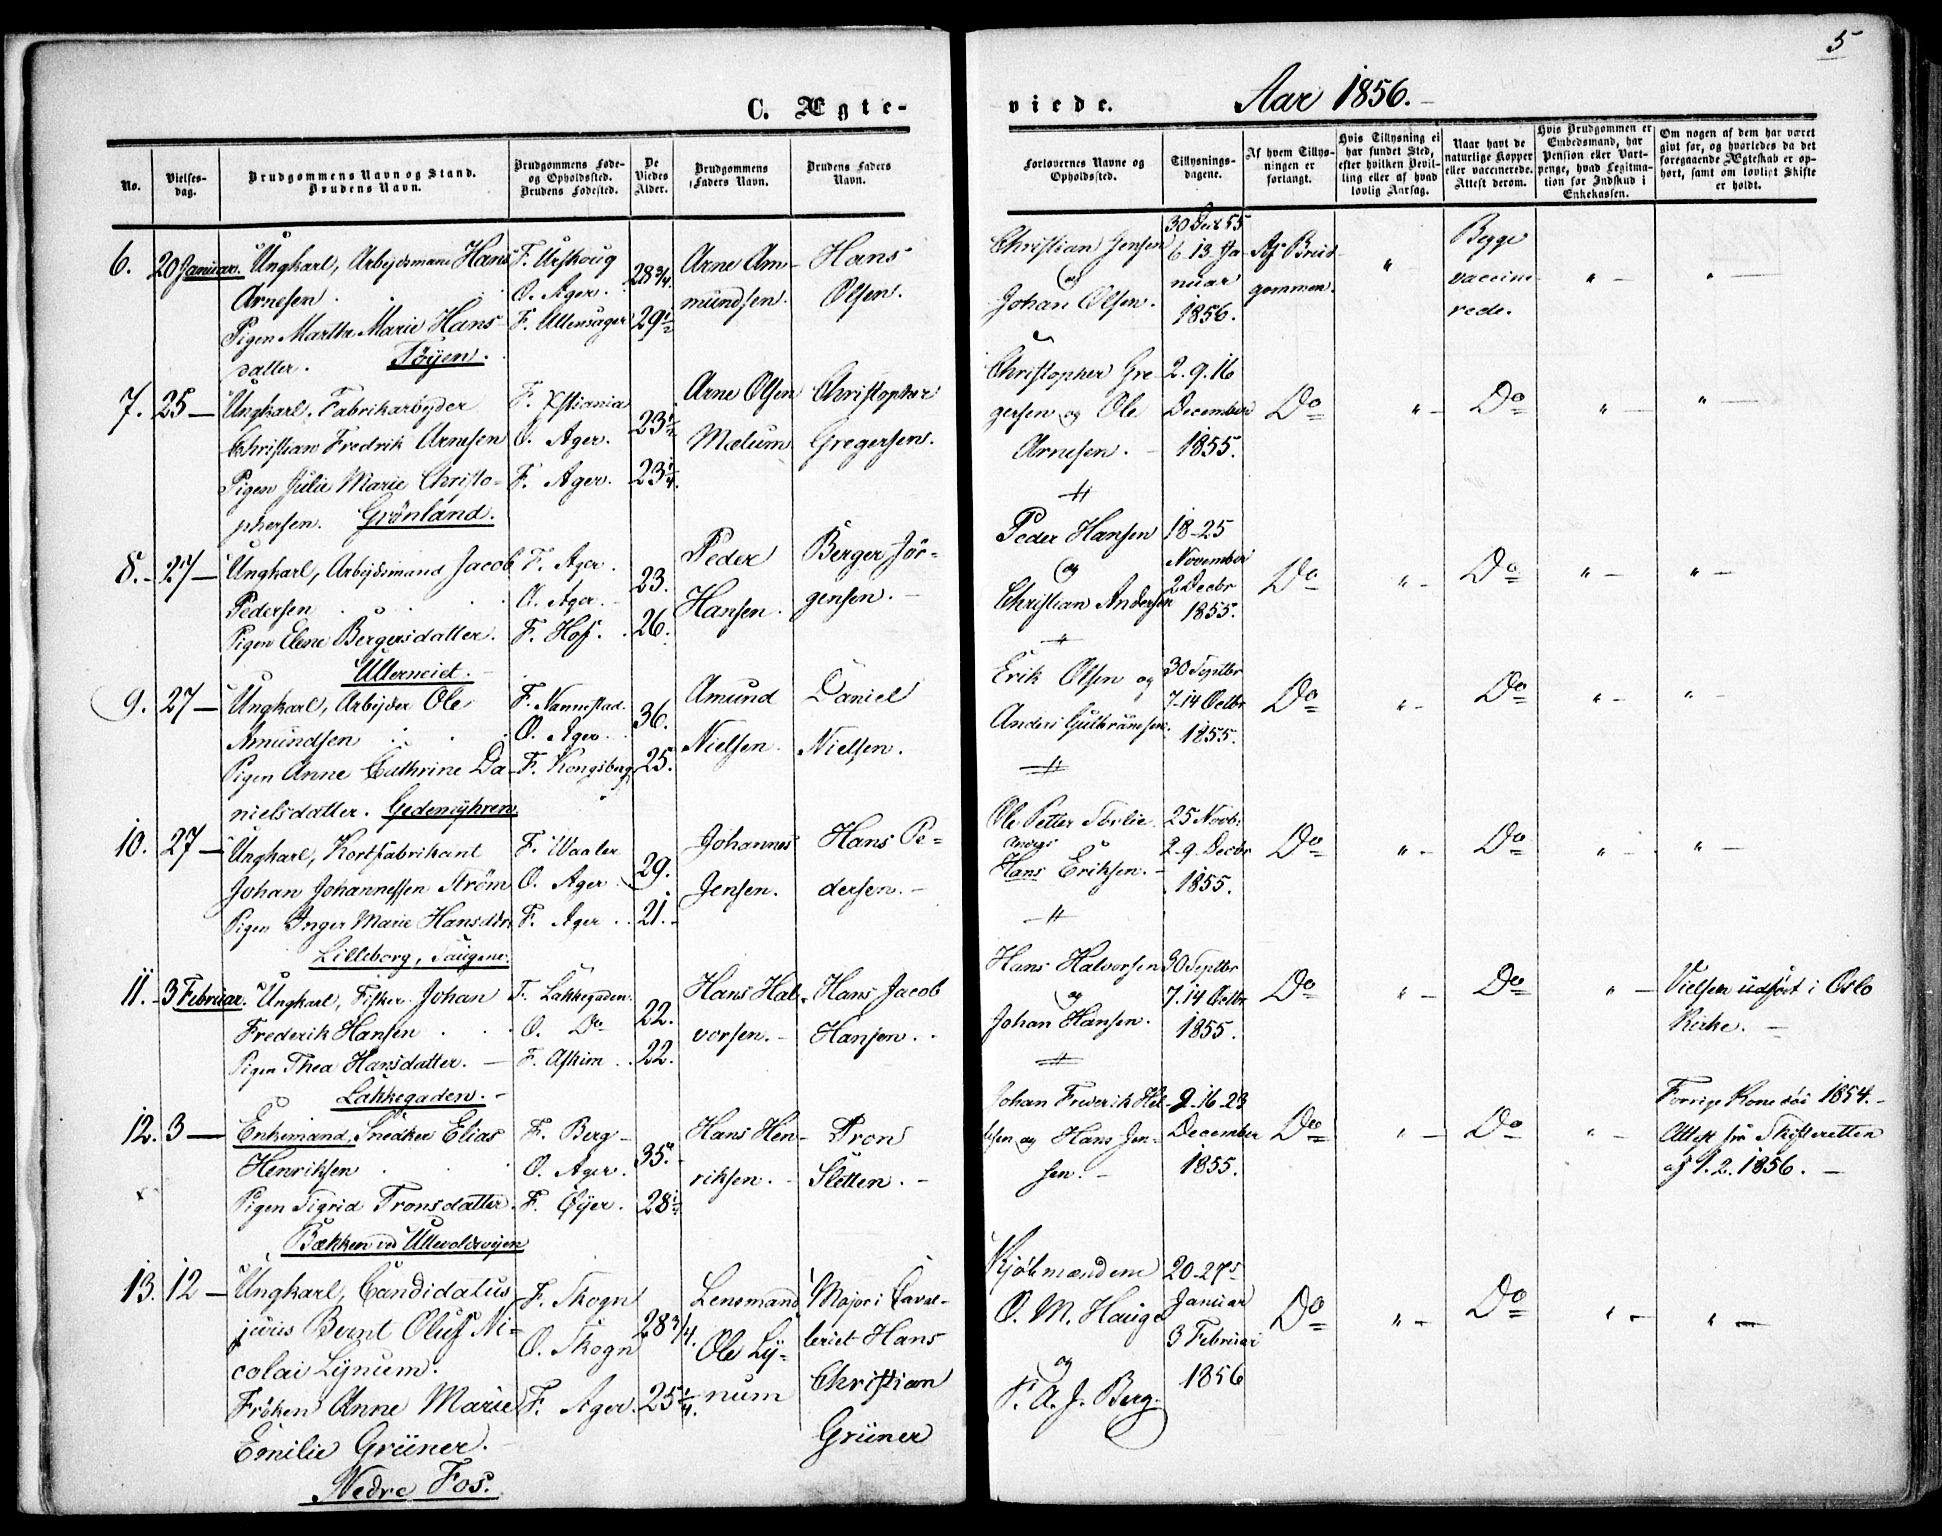 5
C. Ægte-
viede.
Aar 1856.
No.
Vielses-
dag.
Brudgommens Navn og Stand.
Brudens Navn.
Brudgommens Føde-
og Opholdssted.
Brudens Fødested.
De
Viedes
Alder.
Brudgommens
Faders Navn.
Brudens Faders
Navn.
Forlovernes Navne og
Opholdssted.
Tillysnings-
dagene.
Af hvem Tillys-
ningen er
forlangt.
Hvis Tillysning ei
har fundet Sted,
efter hvilken Bevil-
ling eller af hvad
lovlig Aarsag.
Naar havt de
naturlige Kopper
eller vaccinerede.
Attest derom.
Hvis Brudgommen er
Embedsmand, har
Pension eller Vart-
penge, hvad Legitima-
tion for Indskud i
Enkekassen.
Om nogen af dem har været
gift før, og hvorledes da det
foregaaende Ægteskab er op-
hørt, samt om lovligt Skifte
er holdt.
6. 20 Januar. Ungkarl, Arbejdsmand Hans
Arnesen
Pigen Marthe Marie Hans-
datter. Tøyen.
F. Urskoug
O. Ager.
F. Ullensager
28 3/4
29 1/2
Arne Am-
mundsen.
Hans
Olsen.
Christian Jensen
og
Johan Olsen.
30 Dec 55
6 13 Ja-
nuar
1856.
Af Brud-
gommen.
" -
Begge
vaccine-
rede.
" -
" -
7. 25 - Ungkarl, Fabrikarbejder
Christian Fredrik Arnesen
Pigen Julie Marie Christo-
phersen. Grönland.
F. Xstiania
O. Ager.
F. Ager.
23 1/2
23 1/4.
Arne Olsen
Mælum
Christopher
Gregersen.
Christopher Gre-
gersen og Ole
Arnesen. -
2. 9. 16
December
1855.
Do
" -
Do
" -
" -
8. - 27 - Ungkarl, Arbejdsmand Jacob
Pedersen
Pigen Elene Bergersdatter.
F. Ager.
O. Ager. -
F. Hof.
23.
26.
Peder
Hansen.
Berger Jör-
gensen. -
Peder Hansen
og
Christian Andersen
18-25
November
2 Decbr
1855.
Do
" -
Do
" -
" -
9. 27 - Ungkarl, Arbejder Ole
Amundsen
Pigen Anne Cathrine Da-
nielsdatter.
F. Nannestad.
O. Ager.
F. Kongsberg
36.
25.
Amund
Nielsen.
Daniel
Nielsen.
Erik Olsen og
Anders Gulbransen.
30 Septbr
7-14 Octbr
1855.
Do
" -
Do
" -
" -
10. 27 - Ungkarl, Kortfabrikant
Johan Johannessen Ström
Pigen Inger Marie Hansdtr.
Lilleborg, Saugene.
F. Waaler
O. Ager
F. Ager
29.
21. -
Johannes
Jensen.
Hans Pe-
dersen. -
Ole Petter
Hans Eriksen. -
25 Novb.
2-9. Decbr
1855.
Do
" -
Do
" -
" -
11. - 3 Februar. Ungkarl, Fisker Johan
Frederik Hansen
Pigen Thea Hansdatter. -
Lakkegaden. -
F. Lakkegaden.
O. Do
F. Askim
22.
22.
Hans Hal-
vorsen. -
Hans Jacob
Hansen.
Hans Halvorsen
og
Johan Hansen.
30 Septbr
7. 14 Octbr
1855.
Do
" -
Do
" -
Vielsen udført i Oslo
Kirke. -
12. 3 - Enkemand, Snedker Elias
Henriksen
Pigen Sigrid Tronsdatter.
Bakken ved Ullevoldsvejen
F. Berg -
O. Ager.
F. Öyer.
35.
28 1/2
Hans Hen-
riksen. -
Tron
Sletten. -
Johan Frederik
og Hans Jen-
sen. -
9-16-23
December
1855.
Do
" -
Do
" -
Forrige Kone död 1854. -
Attest fra Skifteretten
af 1. 2. 1856. -
13. 12 - Ungkarl, Candidatus
juris Bernt Oluf Ni-
colai Lynum.
Fröken Anne Marie
Emilie Grüner.
Nedre Fos.
F. Skogn
O. Skogn
F. Ager.
28 3/4.
25 1/4.
Lensmand
Ole Ly-
num
Major i Caval-
leriet Hans
Christian
Grüner
Kjöbmændene
O. M. Hauge
og
P. A. J. Berg.
20-27
Januar
3 Februar
1856
Do
" -
Do
" -
" -